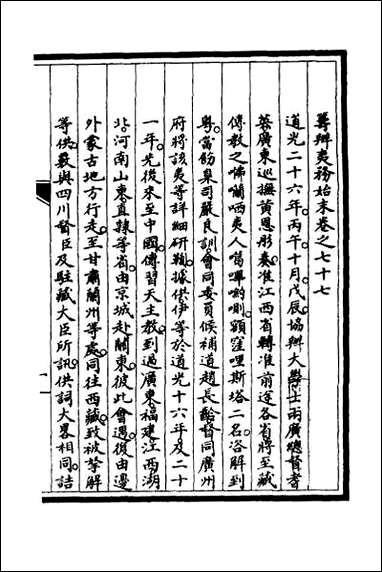 籌辦夷務始末卷之七十七
道光二十六年。丙午。十月。戊辰。協辦大學士兩廣總督耆
英廣東巡撫黃恩彤奏。准江西省轉准前途各省將至藏
傳教之㖇囒哂夷人噶嗶喲則額窪哩斯塔二名。咨解到
粵。當飭臬司嚴良訓會同委員候補道趙長齡督同廣州
府將該夷等詳細研鞫。據供。伊等於道光十六年及二十
一年。先後來至中國。傳習天主教。到過廣東福建江西湖
北。河南山東直隸等省。由京城赴關東。彼此會遇。復由邊
外蒙古地方行走。至甘肅蘭州等處。同往西藏。致被拏解
等供。覈與四川督臣及駐藏大臣所訊供詞大畧相同。詰
一